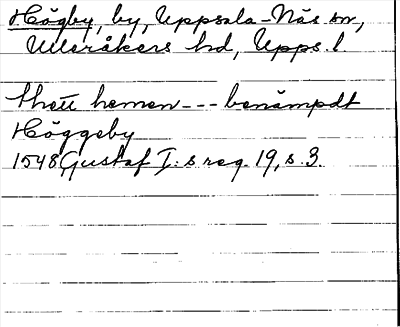 Högby, by, Uppsala-Näs sn,
Ulleråkers hd, Upps. l
thett hemen --- benämpdt
Höggeby
1548 Gustaf I:s reg. 19, s. 3.